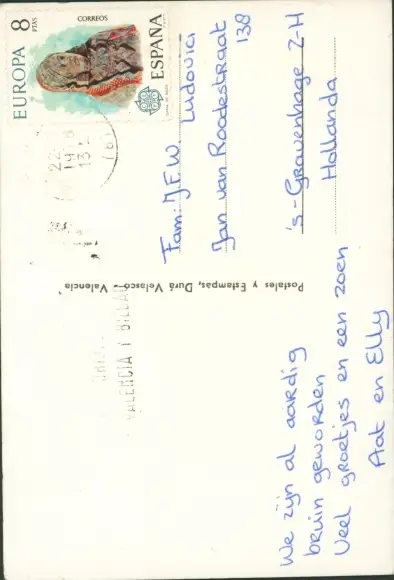 EUROPA 8 PTAS
CORREOS
ESPAÑA
22
19
13
VALENCIA Y BILBAO
Postales y Estampas, Durá Velasco - Valencia
We zijn al aardig
bruin geworden
Veel groetjes en een zoen
Aat en Elly
Fam: J.F.W. Ludovici
Jan van Roodestraat
138
's-Gravenhage Z-H
Hollanda